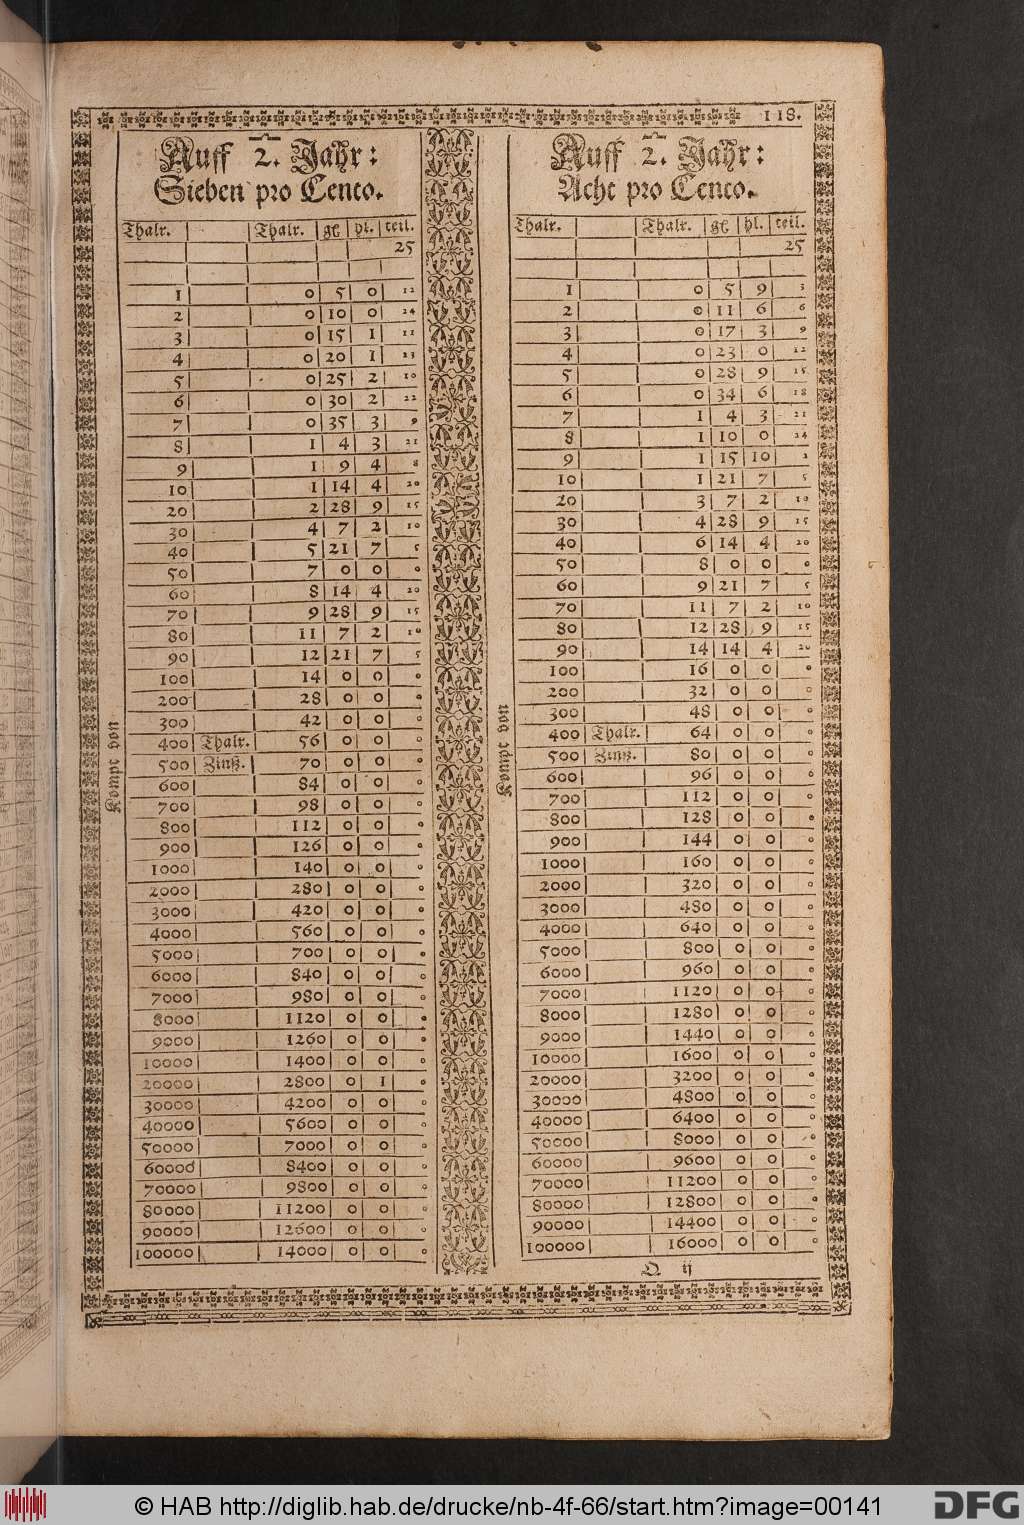 118.
Auff 2. Jahr:
Sieben pro Cento.
Thalr. Thalr. gℓ hl. teil.
25
1 0 5 0 12
2 0 10 0 24
3 0 15 1 11
4 0 20 1 23
5 0 25 2 10
6 0 30 2 22
7 0 35 3 9
8 1 4 3 21
9 1 9 4 8
10 1 14 4 20
20 2 28 9 15
30 4 7 2 10
40 5 21 7 5
50 7 0 0 0
60 8 14 4 20
70 9 28 9 15
80 11 7 2 10
90 12 21 7 5
100 14 0 0 0
200 28 0 0 0
300 42 0 0 0
400 Thalr. 56 0 0 0
500 Zinß. 70 0 0 0
600 84 0 0 0
700 98 0 0 0
800 112 0 0 0
900 126 0 0 0
1000 140 0 0 0
2000 280 0 0 0
3000 420 0 0 0
4000 560 0 0 0
5000 700 0 0 0
6000 840 0 0 0
7000 980 0 0 0
8000 1120 0 0 0
9000 1260 0 0 0
10000 1400 0 0 0
20000 2800 0 1 0
30000 4200 0 0 0
40000 5600 0 0 0
50000 7000 0 0 0
60000 8400 0 0 0
70000 9800 0 0 0
80000 11200 0 0 0
90000 12600 0 0 0
100000 14000 0 0 0
Kompt von
Auff 2. Jahr:
Acht pro Cento.
Thalr. Thalr. gℓ hl. teil.
25
1 0 5 9 3
2 0 11 6 6
3 0 17 3 9
4 0 23 0 12
5 0 28 9 15
6 0 34 6 18
7 1 4 3 21
8 1 10 0 24
9 1 15 10 2
10 1 21 7 5
20 3 7 2 10
30 4 28 9 15
40 6 14 4 20
50 8 0 0 0
60 9 21 7 5
70 11 7 2 10
80 12 28 9 15
90 14 14 4 20
100 16 0 0 0
200 32 0 0 0
300 48 0 0 0
400 Thalr. 64 0 0 0
500 Zinß. 80 0 0 0
600 96 0 0 0
700 112 0 0 0
800 128 0 0 0
900 144 0 0 0
1000 160 0 0 0
2000 320 0 0 0
3000 480 0 0 0
4000 640 0 0 0
5000 800 0 0 0
6000 960 0 0 0
7000 1120 0 0 0
8000 1280 0 0 0
9000 1440 0 0 0
10000 1600 0 0 0
20000 3200 0 0 0
30000 4800 0 0 0
40000 6400 0 0 0
50000 8000 0 0 0
60000 9600 0 0 0
70000 11200 0 0 0
80000 12800 0 0 0
90000 14400 0 0 0
100000 16000 0 0 0
Kompt von
Q ij
© HAB http://diglib.hab.de/drucke/nb-4f-66/start.htm?image=00141
DFG